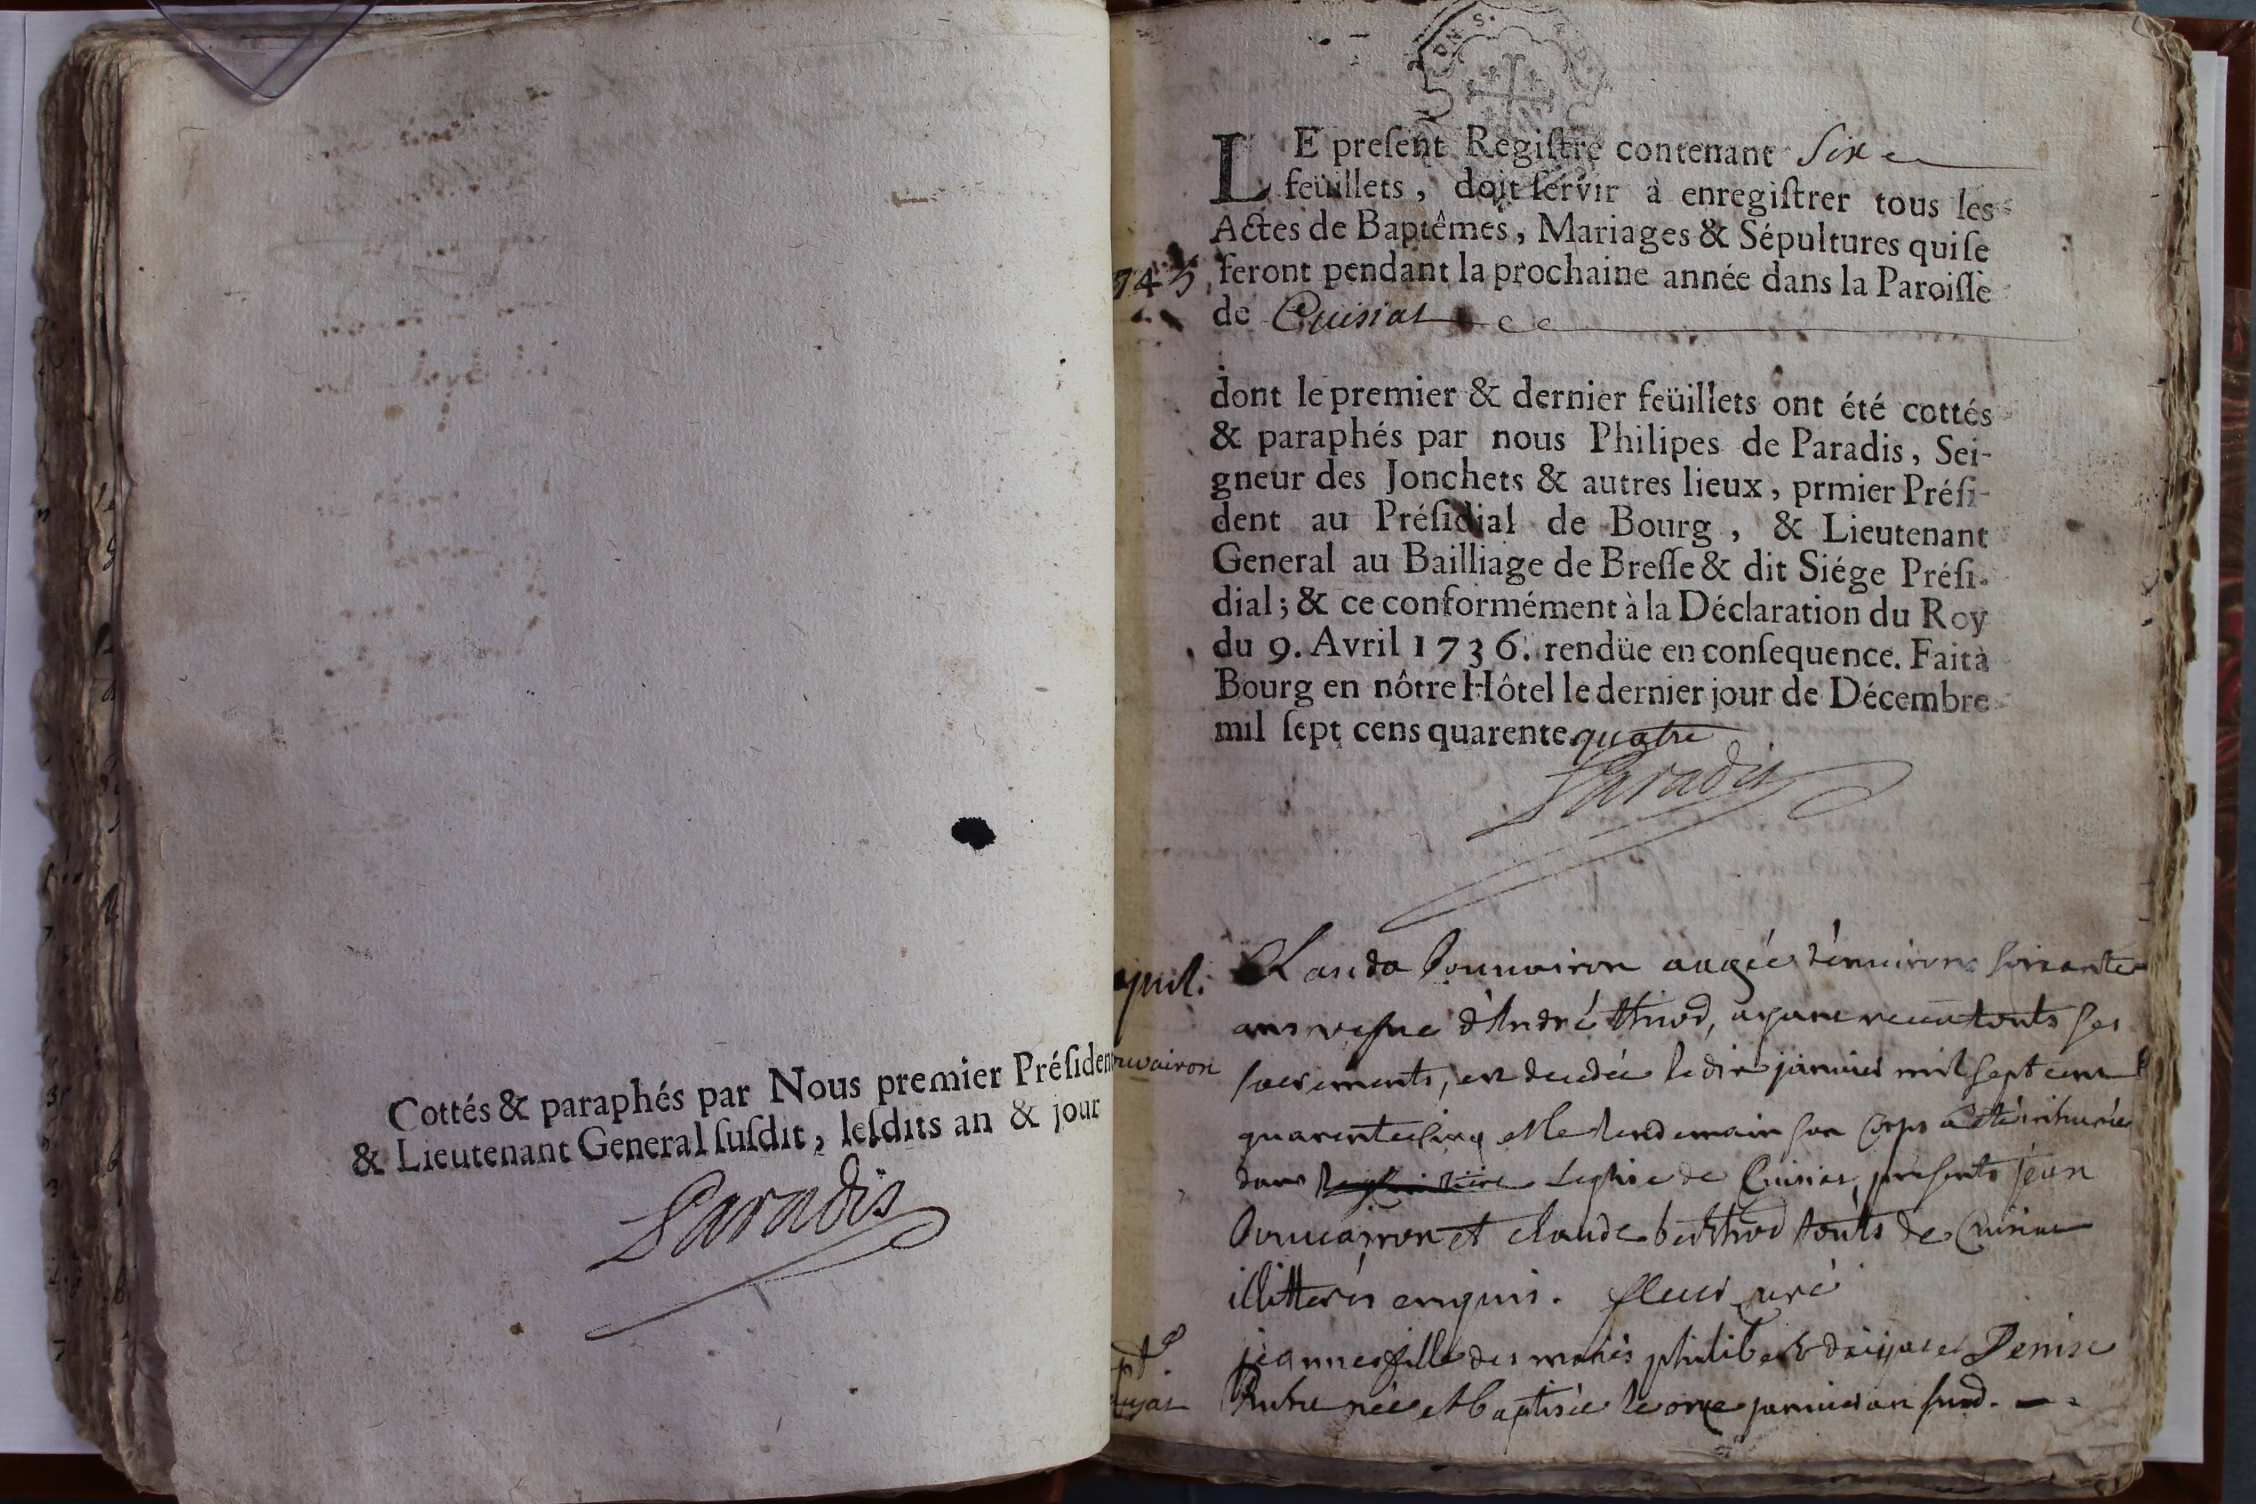 Cottés & paraphés par Nous premier Présiden
& Lieutenant General ſuſdit, leſdits an & jour
Paradis
LE preſent Regiſtre contenant Six
feüillets, doit ſervir à enregiſtrer tous les
Actes de Baptêmes, Mariages & Sépultures qui ſe
745
feront pendant la prochaine année dans la Paroiſſe
de Cuisiat
dont le premier & dernier feüillets ont été cottés
& paraphés par nous Philipes de Paradis, Sei-
gneur des Jonchets & autres lieux, prmier Préſi-
dent au Préſidial de Bourg, & Lieutenant
General au Bailliage de Breſſe & dit Siége Préſi-
dial; & ce conformément à la Déclaration du Roy
du 9. Avril 1736. rendüe en conſequence. Fait à
Bourg en nôtre Hôtel le dernier jour de Décembre
mil ſept cens quarente quatre
Paradis
Clauda bouuairon aagée d'enuiron soixante
ans vefue d'André thivod, ayant receu touts ses
ouvairon
sacrements, est decedée le dix janvier mil sept cent
quarentecinq et le lendemain son corps a été inhumée
dans le cimetiere Leglise de Cuisiat, presents jean
bouuairon et claude berthod touts de Cuisiat
illitterés enquis. fleur curé
jeanne fille des mariés philibert Denise
née et baptisée le onze janvier an susd.